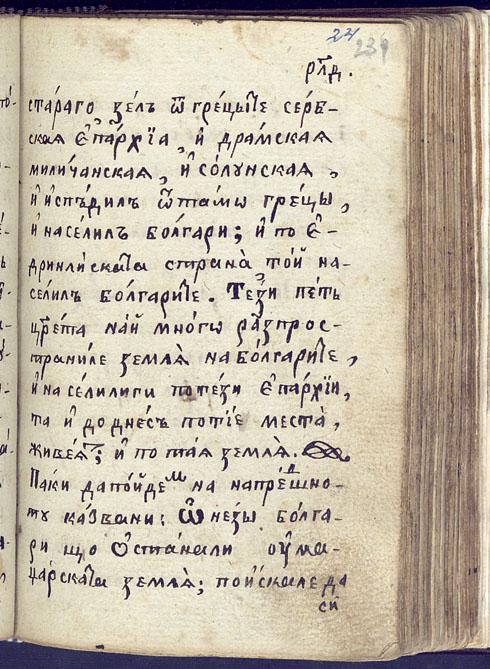 24
239
рл҃д.
ста́раго зелъ ѿ гре́цы́те се́рб-
ская є҆па́рхїа, и҆ дра́мская
мили́чанская, и҆ со́лунская,
и҆ испъ́дилъ ѿтамѡ гре́цы,
и҆ насе́лилъ болгари; и҆ по є҆-
дринли́ската страна̀ то́й на-
сели́лъ бо́лгари́те. Те́зи пе́ть
цр҃е́та на́й мно́гѡ ра́зпрос-
траниле земля̀ на бо́лгари́те,
и҆ на се́лилиги поте́зи є҆па́рхїи,
та и҆ до дне́съ по ті́е места̀,
живе́ят; и҆ по тая земля̀.
Паки да по́йдем на напре́шно-
ту ка́звани: ѿ не́зы бо́лга-
ри що ѻ҆ста́нали оу҆ ма-
џа́рската земля̀; поискале да
си